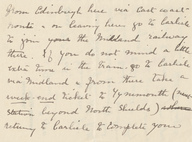 From Edinburgh here via East coast
route & on leaving here go to Carlisle
to join your the Midland railway
there. If you do not mind a little
extra time in the train, go to Carlisle
via Midland & from there take a
week end ticket to Tynemouth (
station beyond North Shields)
return to Carlisle to complete your